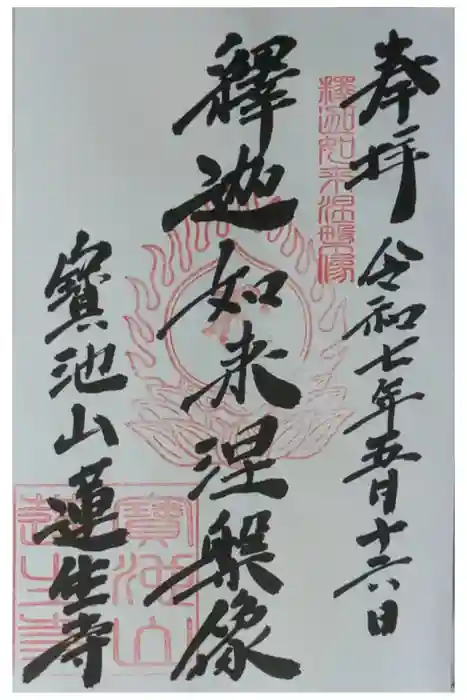 奉拝 令和七年五月十六日
釋迦如来涅槃像
釋迦如来涅槃像
寳池山蓮生寺
寳池山
蓮生寺